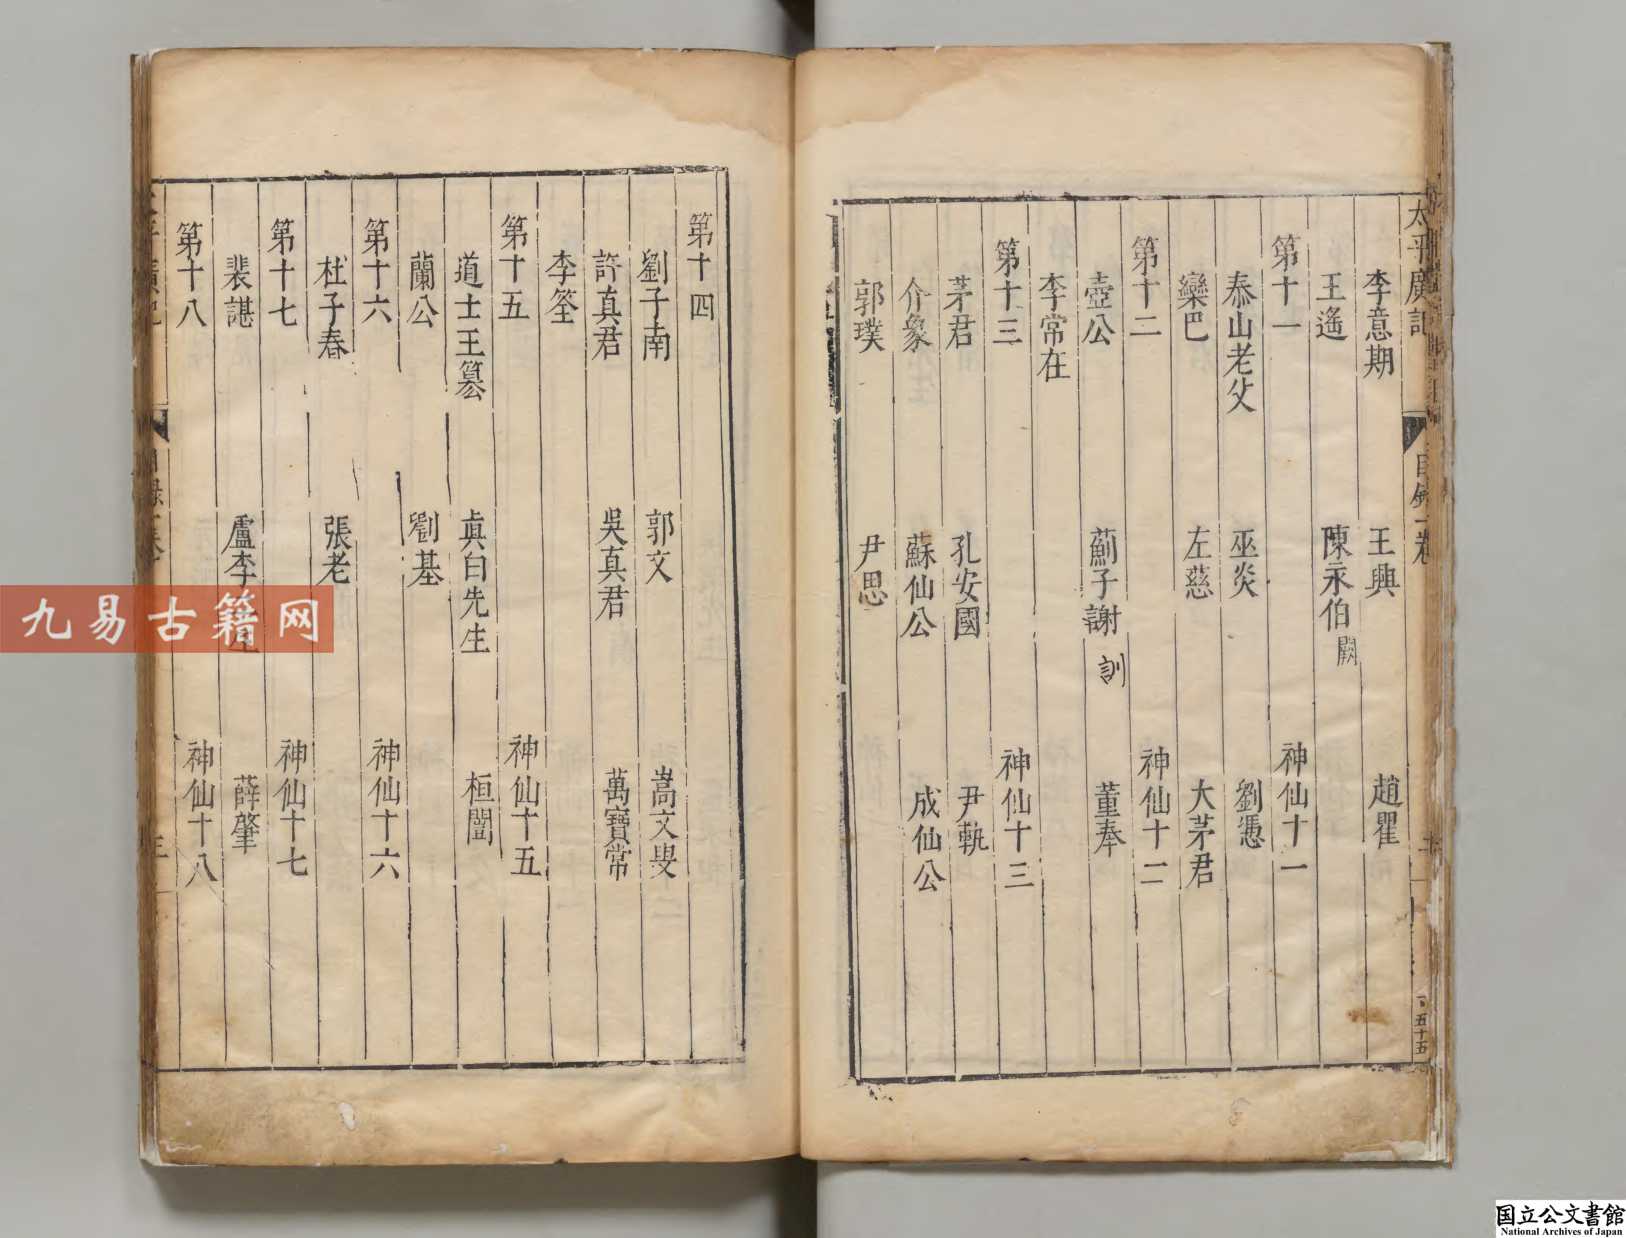 太平廣記 目錄一卷 五十五
李意期 王興 趙瞿
王遙 陳永伯闕
第十一 神仙十一
泰山老父 巫炎 劉憑
欒巴 左慈 大茅君
第十二 神仙十二
壺公 薊子謝訓 董奉
李常在
第十三 神仙十三
茅君 孔安國 尹軌
介象 蘇仙公 成仙公
郭璞 尹思
第十四
劉子南 郭文 嵩文叟
許真君 吳真君 萬寶常
李筌
第十五 神仙十五
道士王纂 真白先生 桓闓
蘭公 劉基
第十六 神仙十六
杜子春 張老
第十七 神仙十七
裴諶 盧李二生 薛肇
第十八 神仙十八
九易古籍网
国立公文書館
National Archives of Japan